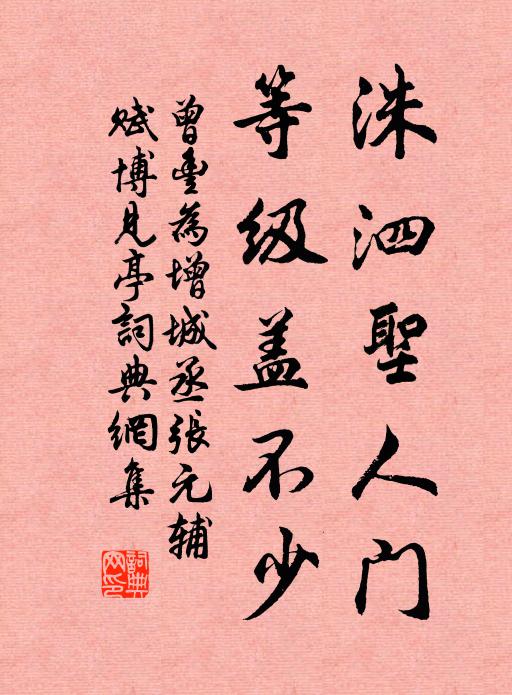 洙泗聖人门
等级盖不少
曾豊為增城丞張元辅
赋博见亭詞典網集
詞典網印